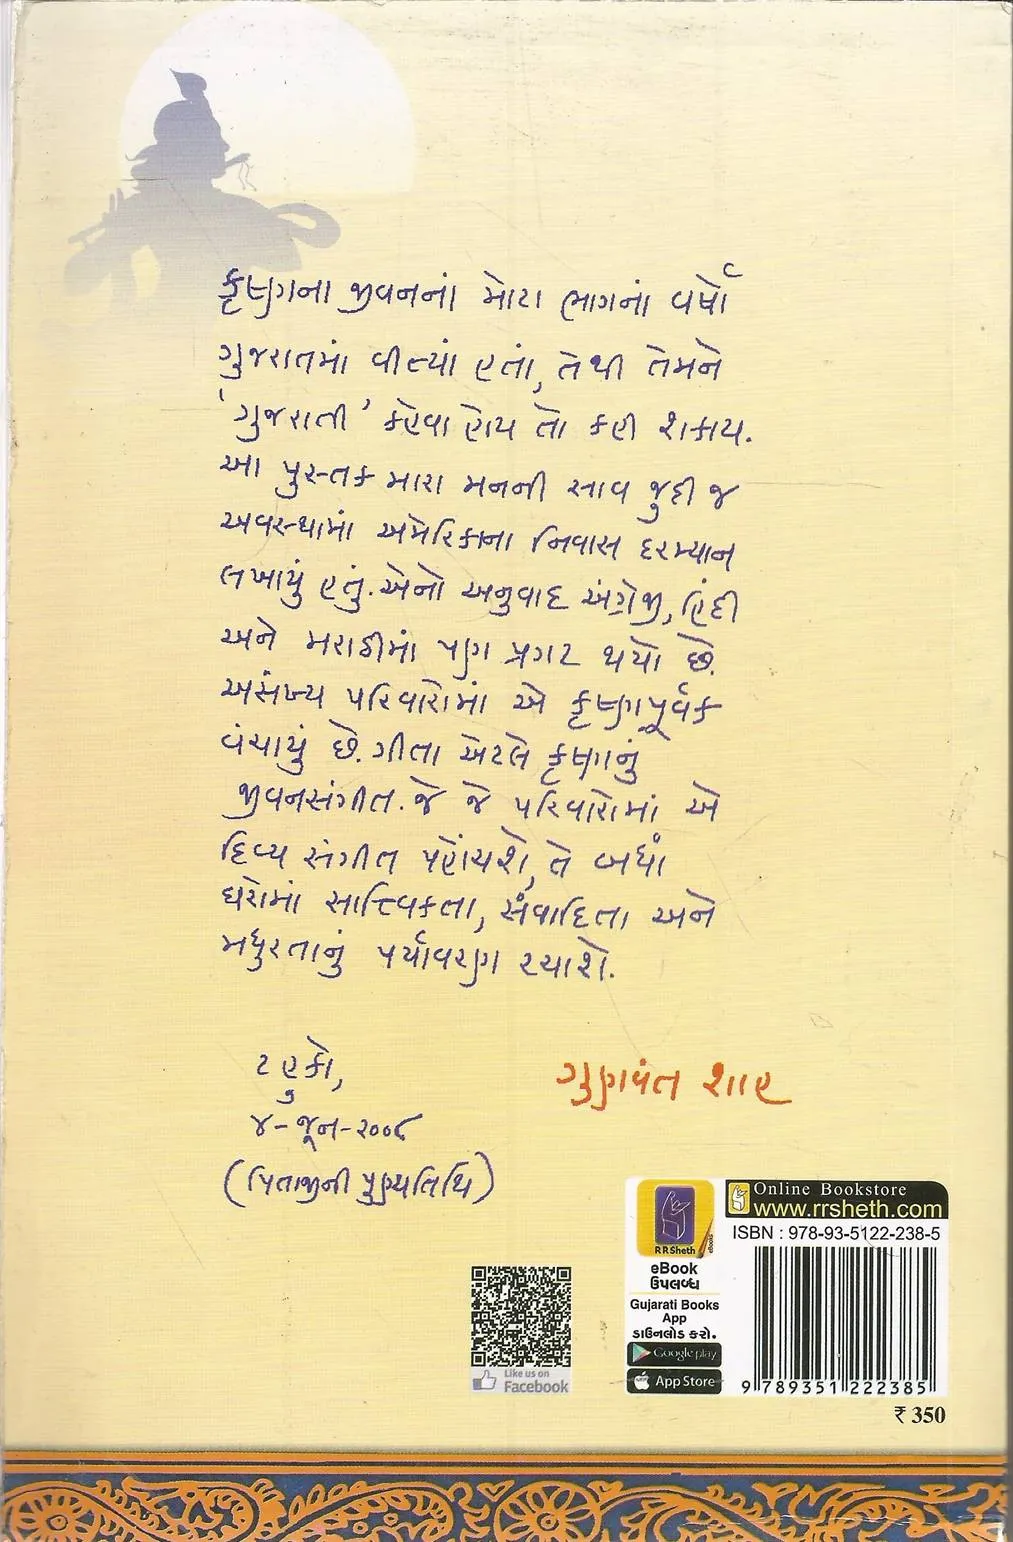 કૃષ્ણના જીવનનાં મોટા ભાગનાં વર્ષો
ગુજરાતમાં વીત્યાં હતાં, તેથી તેમને
'ગુજરાતી' કહેવા હોય તો કહી શકાય.
આ પુસ્તક મારા મનની સાવ જુદી જ
અવસ્થામાં અમેરિકાના નિવાસ દરમ્યાન
લખાયું હતું. એનો અનુવાદ અંગ્રેજી, હિંદી
અને મરાઠીમાં પણ પ્રગટ થયો છે.
અસંખ્ય પરિવારોમાં એ કૃષ્ણપૂર્વક
વંચાયું છે. ગીતા એટલે કૃષ્ણનું
જીવનસંગીત. જે જે પરિવારોમાં એ
દિવ્ય સંગીત પહોંચશે, તે બધાં
ઘરોમાં સાત્ત્વિકતા, સંવાદિતા અને
મધુરતાનું પર્યાવરણ રચાશે.
ટહુકો,
૪-જૂન-૨૦૦૮
(પિતાજીની પુણ્યતિથિ)
ગુણવંત શાહ
Like us on
Facebook
R R Sheth
eBooks
eBook
ઉપલબ્ધ
Gujarati Books
App
ડાઉનલોડ કરો.
Google play
App Store
Online Bookstore
www.rrsheth.com
ISBN : 978-93-5122-238-5
9 789351 222385
₹ 350